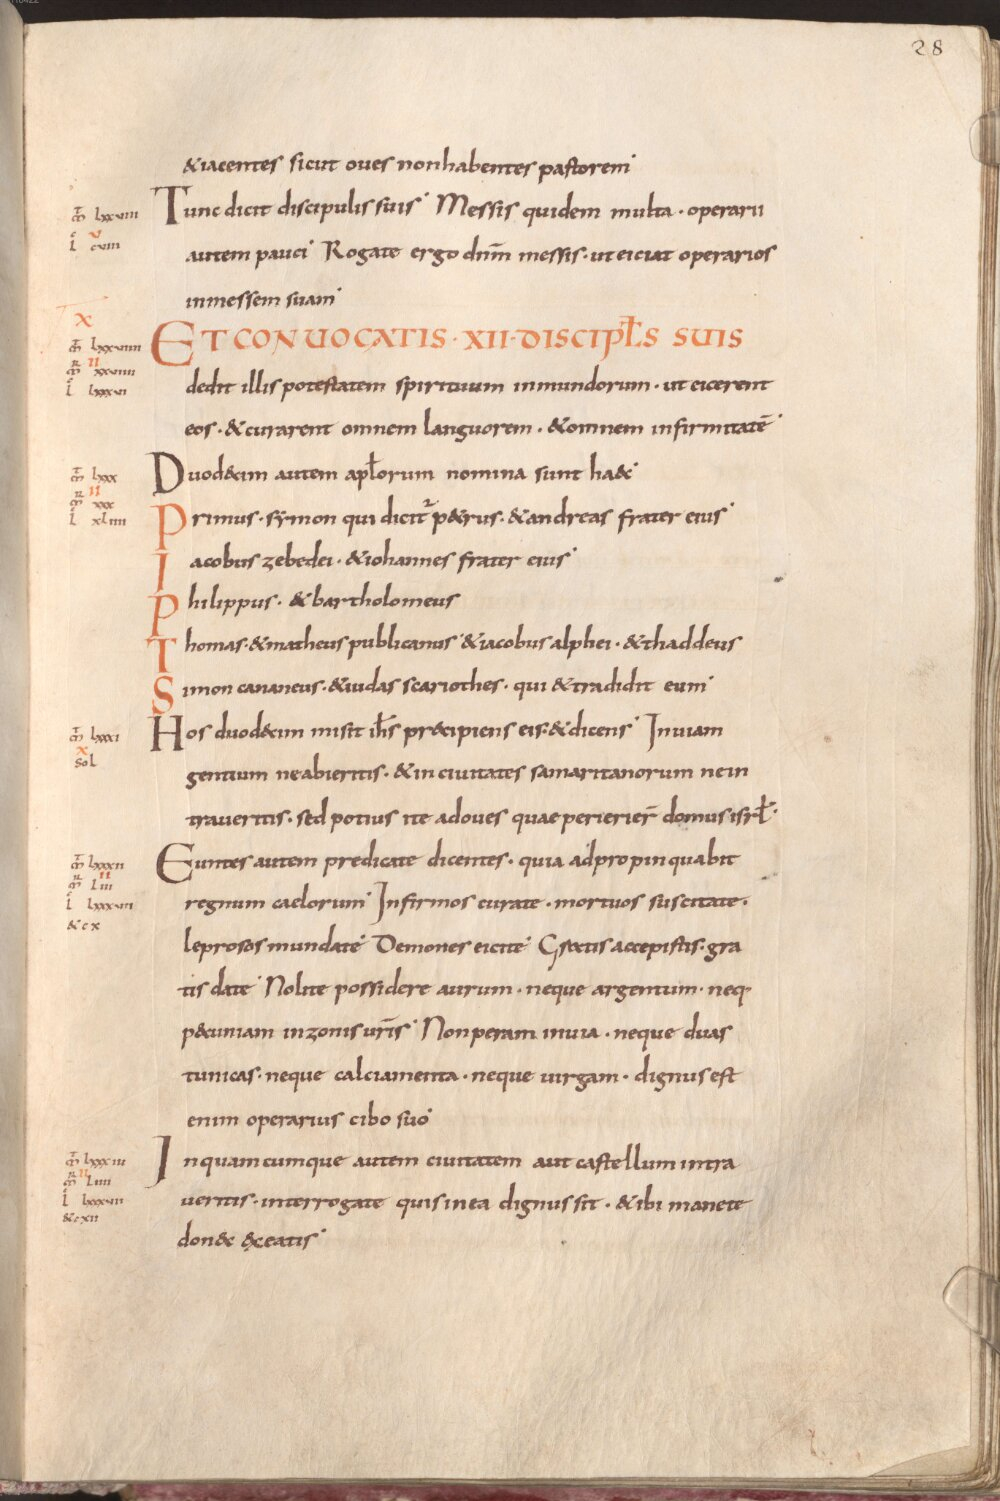 28
&iacentes sicut oues nonhabentes pastorem·
Tunc dicit discipulis suis· Messis quidem multa · operarii
autem pauci· Rogate ergo dnm̄ messis · ut eiciat operarios
inmessem suam·
X
ET CONUOCATIS · XII · DISCIPŁS SUIS
dedit illis potestatem spirituum inmundorum · ut eicerent
eos · &curarent omnem languorem · &omnem infirmitatē·
Duod&cim autem apłorum nomina sunt ha&c·
Primus · symon qui dicit᷑ p&rus · &andreas frater eius·
Iacobus zebedei · &iohannes frater eius·
Philippus · &bartholomeus
Thomas · &matheus publicanus &iacobus alphei · &thaddeus
Simon cananeus · &iudas scariothes · qui &tradidit eum·
Hos duod&cim misit ihs̄ precipiens eis · &dicens· Inuiam
gentium neabieritis · &in ciuitates samaritanorum nein
traueritis · sed potius ite adoues quae perierier̄ domus isrł·
Euntes autem predicate dicentes · quia adpropinquabit
regnum caelorum· Infirmos curate · mortuos suscitate ·
leprosos mundate· Demones eicite· Gratis accepistis · gra
tis date· Nolite possidere aurum · neque argentum · neq·
p&cuniam inzonis uris̄· Nonperam inuia · neque duas
tunicas · neque calciamenta · neque uirgam · dignus est
enim operarius cibo suo·
Inquamcumque autem ciuitatem aut castellum intra
ueritis · interrogate quis inea dignus sit · &ibi manete
don&c &ceatis·